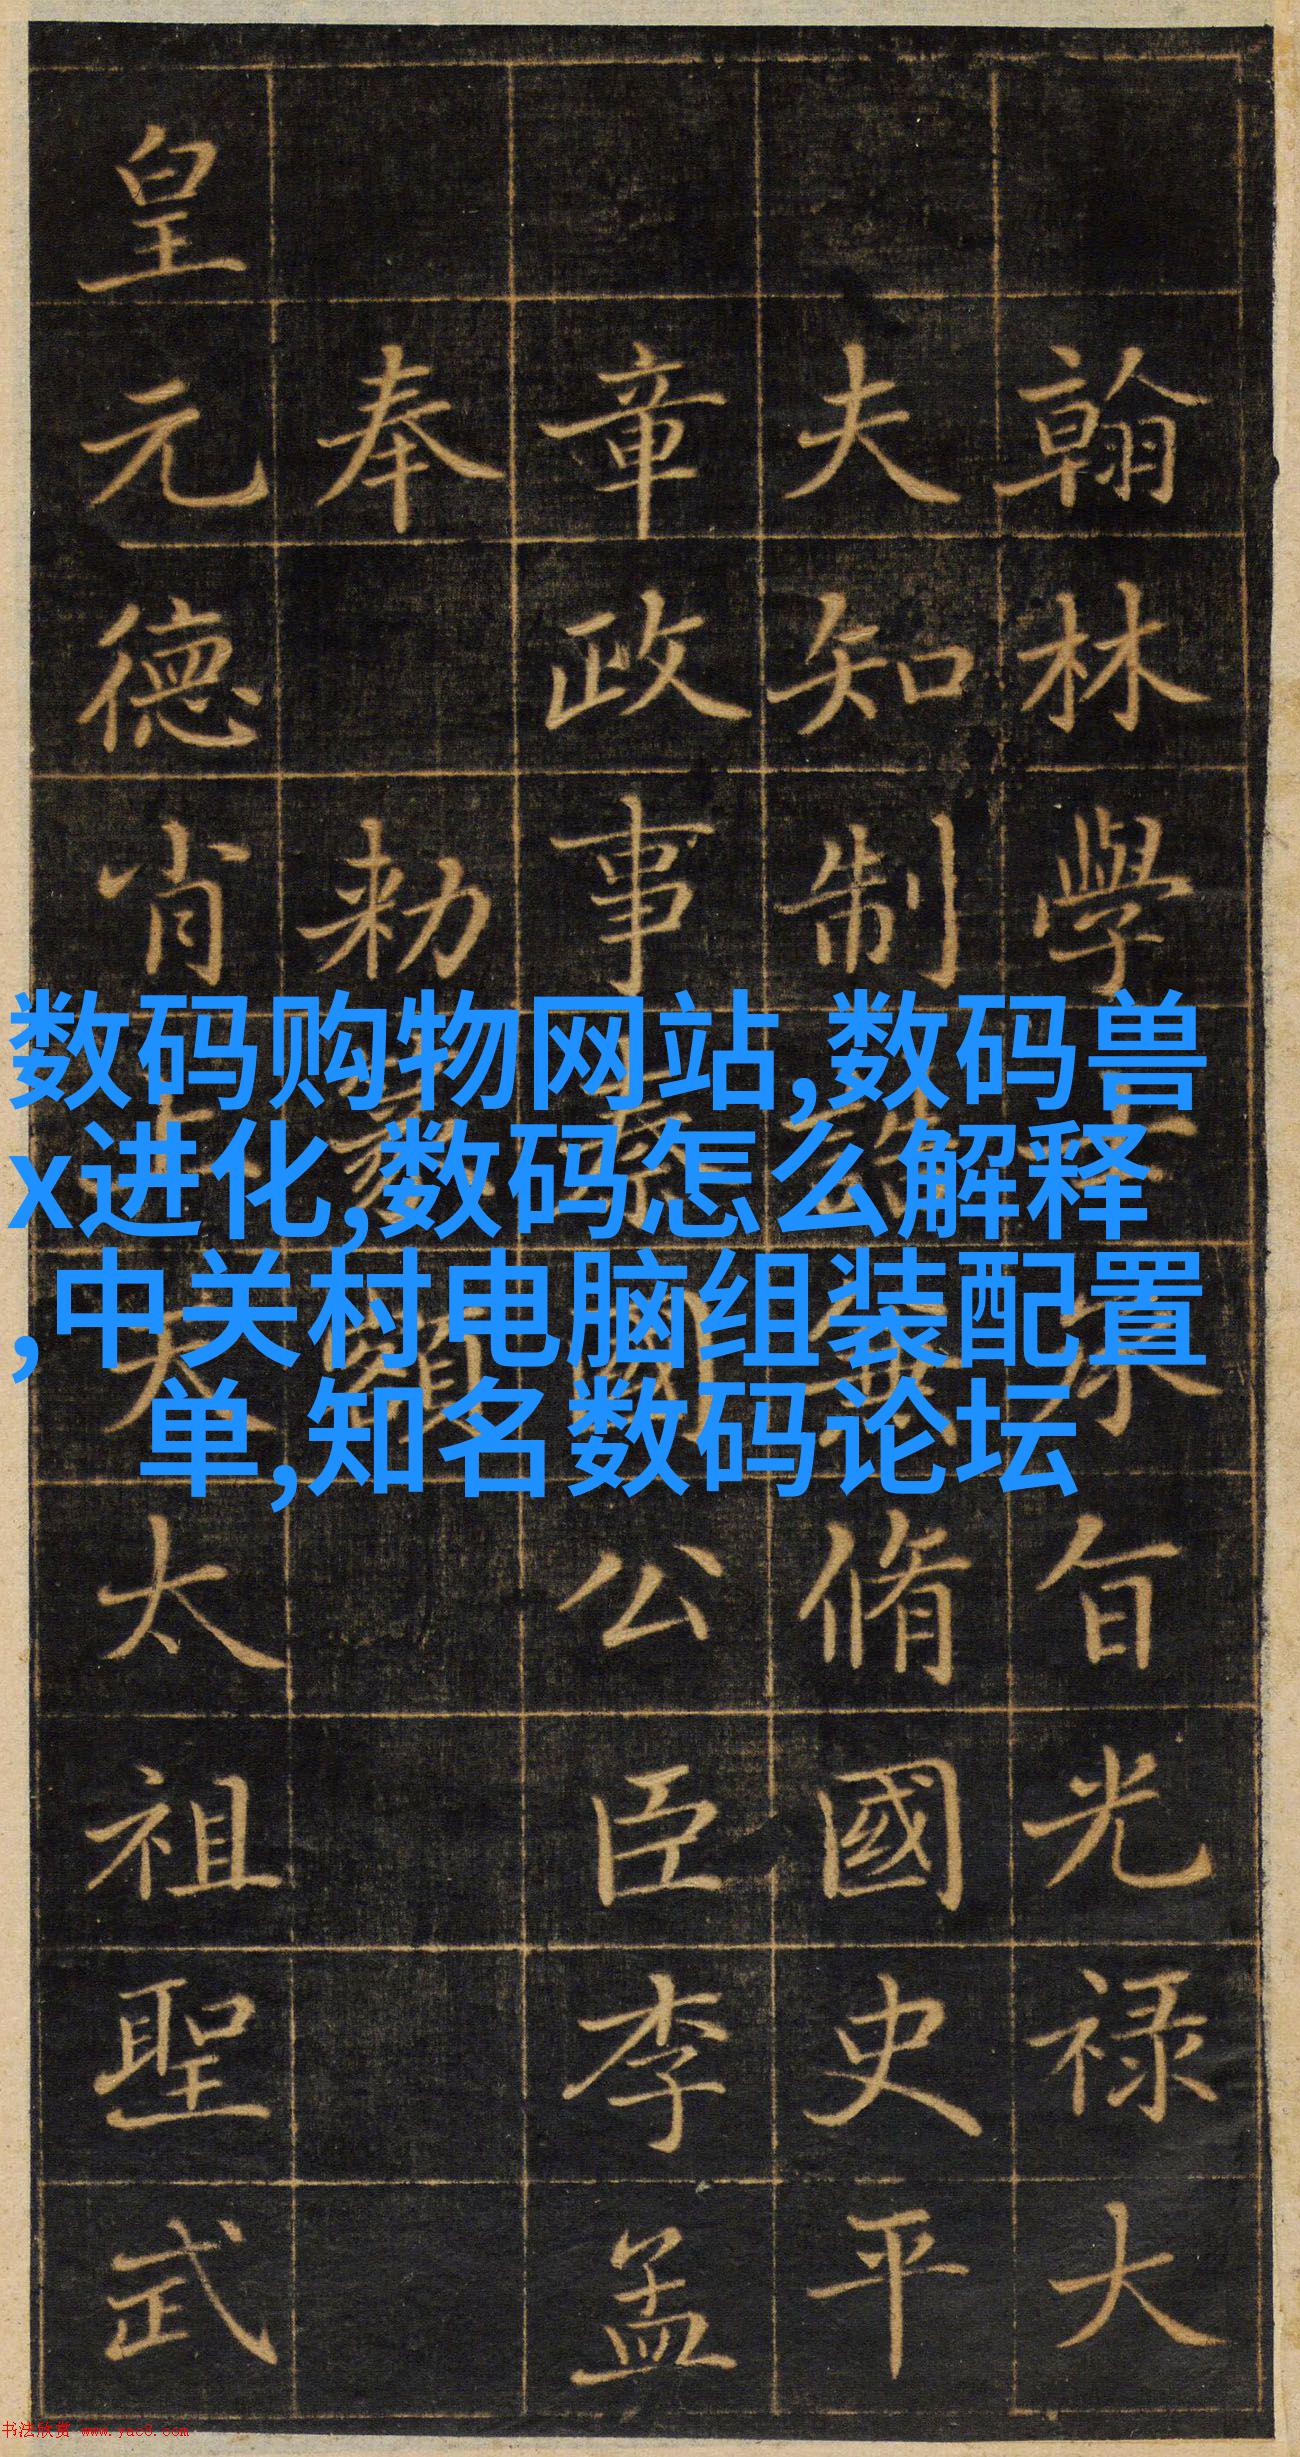 翰林學旨光禄大
夫知制脩國史平
章政事公臣李孟
奉勅
皇元德肖太祖聖武
数码购物网站,数码兽
x进化,数码怎么解释
,中关村电脑组装配置
单,知名数码论坛
书法欣赏 www.yac8.com